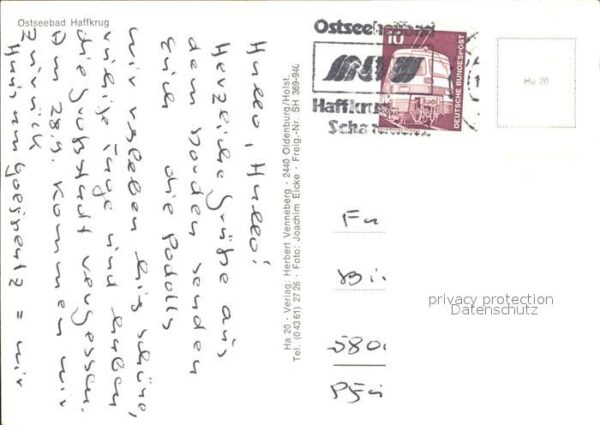 Ostseebad Haffkrug
Hallo, Hallo!
Herzliche Grüße aus
dem Norden senden
Euch die Podolls
wir erleben hier schöne,
ruhige Tage und haben
die Großstadt vergessen.
Am 28.9. kommen wir
zurück
= wir
Ha 20 - Verlag: Herbert Venneberg - 2440 Oldenburg/Holst.
Tel. (0 43 61) 27 26 - Foto: Joachim Eicke - Freig.-Nr. SH 369-940
Haffkrug
10
DEUTSCHE BUNDESPOST
Ha 20
privacy protection
Datenschutz